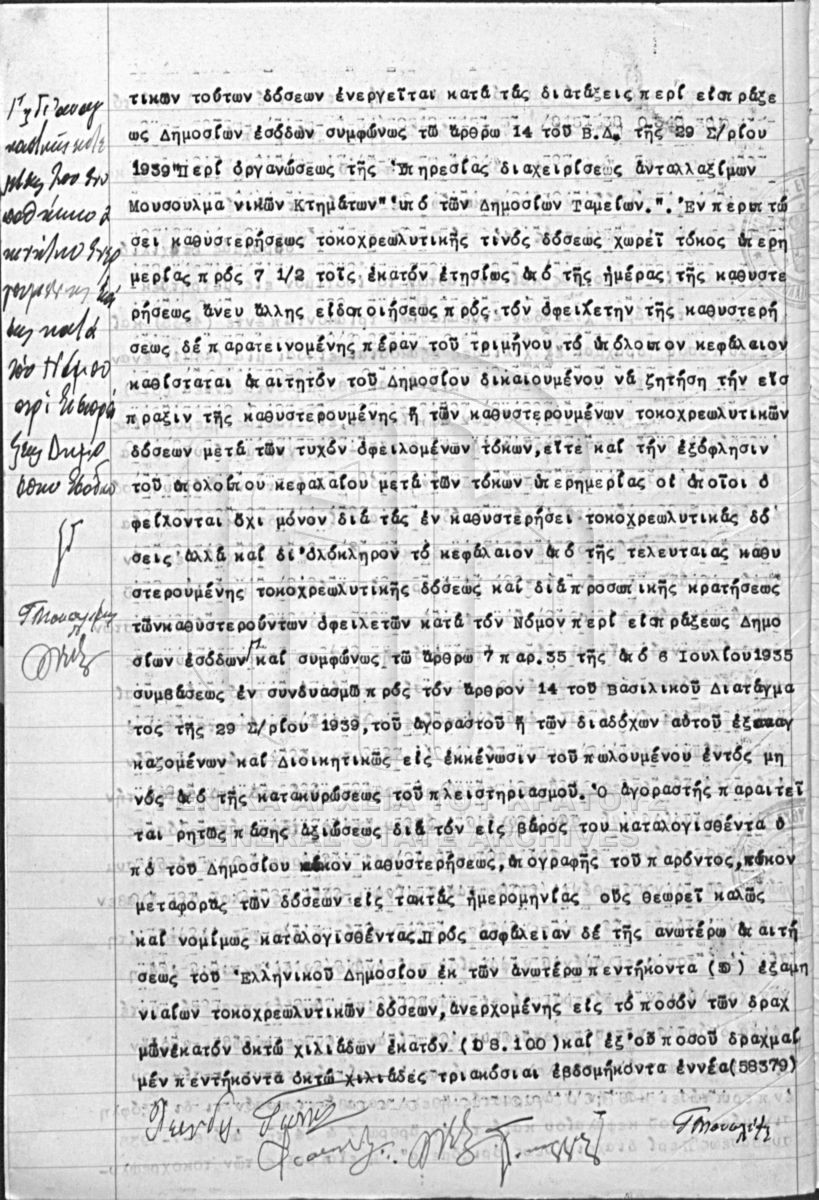 τικων τούτων δόσεων ἐνεργεῖται κατά τάς διατάξεις περί εἰσπράξε
ως Δημοσίων ἐσόδων συμφώνως τῶ ἄρθρω 14 τοῦ Β.Δ. τῆς 29 Σ/ρίου
1939"Περί ὀργανώσεως τῆς Ὑπηρεσίας διαχειρίσεως ἀνταλλαξίμων
Μουσουλμα νικῶν Κτημάτων" ὑπό τῶν Δημοσίων Ταμείων.". Ἐν περιπτώ
σει καθυστερήσεως τοκοχρεωλυτικῆς τινός δόσεως χωρεῖ τόκος ὑπερη
μερίας πρός 7 1/2 τοῖς ἑκατόν ἐτησίως ἀπό τῆς ἡμέρας τῆς καθυστε
ρήσεως ἄνευ ἄλλης εἰδοποιήσεως πρός τόν ὀφειλέτην τῆς καθυστερή
σεως δέ παρατεινομένης πέραν τοῦ τριμήνου τό ὑπόλοιπον κεφάλαιον
καθίσταται ἀπαιτητόν τοῦ Δημοσίου δικαιουμένου νά ζητήση τήν εἰσ
πραξιν τῆς καθυστερουμένης ἤ τῶν καθυστερουμένων τοκοχρεωλυτικῶν
δόσεων μετά τῶν τυχόν ὀφειλομένων τόκων,εἴτε καί τήν ἐξόφλησιν
τοῦ ὑπολοίπου κεφαλαίου μετά τῶν τόκων ὑπερημερίας οἱ ὁποῖοι ὀ
φείλονται ὄχι μόνον διά τάς ἐν καθυστερήσει τοκοχρεωλυτικάς δό
σεις ἀλλά καί δι'ὁλόκληρον τό κεφάλαιον ἀπό τῆς τελευταίας καθυ
στερουμένης τοκοχρεωλυτικῆς δόσεως καί διά προσωπικῆς κρατήσεως
τῶν καθυστερούντων ὀφειλετῶν κατά τόν Νόμον περί εἰσπράξεως Δημο
σίων ἐσόδων καί συμφώνως τῶ ἄρθρω 7 παρ.35 τῆς ἀπό 6 Ιουλίου 1935
συμβάσεως ἐν συνδυασμῶ πρός τόν ἄρθρον 14 τοῦ Βασιλικοῦ Διατάγμα
τος τῆς 29 Σ/ρίου 1939,τοῦ ἀγοραστοῦ ἤ τῶν διαδόχων αὐτοῦ ἐξαναγ
καζομένων καί Διοικητικῶς εἰς ἐκκένωσιν τοῦ πωλουμένου ἐντός μη
νός ἀπό τῆς κατακυρώσεως τοῦ πλειστηριασμοῦ. Ὁ ἀγοραστής παραιτεῖ
ται ρητῶς πάσης ἀξιώσεως διά τόν εἰς βάρος του καταλογισθέντα ὑ
πό τοῦ Δημοσίου τόκον καθυστερήσεως,ὑπογραφῆς τοῦ παρόντος,τόκον
μεταφορᾶς τῶν δόσεων εἰς τακτάς ἡμερομηνίας οὕς θεωρεῖ καλῶς
καί νομίμως καταλογισθέντας.Πρός ἀσφάλειαν δέ τῆς ἀνωτέρω ἀπαιτή
σεως τοῦ Ἑλληνικοῦ Δημοσίου ἐκ τῶν ἀνωτέρω πεντήκοντα (50) ἑξαμη
νιαίων τοκοχρεωλυτικῶν δόσεων,ἀνερχομένης εἰς τό ποσόν τῶν δραχ
μῶν ἑκατόν ὀκτώ χιλιάδων ἑκατόν (108.100)καί ἐξ'οὗ ποσοῦ δραχμαί
μέν πεντήκοντα ὀκτώ χιλιάδες τριακόσιαι ἑβδομήκοντα ἐννέα(58379)
GENERAL STATE ARCHIVES